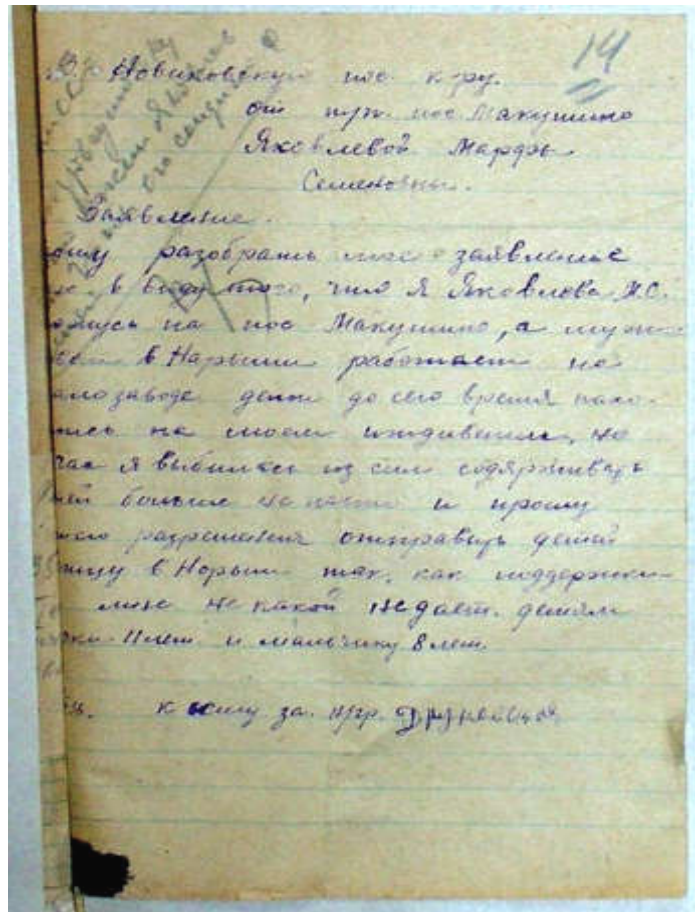 14
В. Новиковскую пос к-ру.
от тр. пос Макушино
Яковлевой Марфы
Семеновны.
Заявление.
ошу разобрать мое заявление
в виду того, что я Яковлева М.С.
ожусь на пос Макушино, а муж
в Нарыме работает на
лозаводе дети до сего время нахо-
лись на моем иждивении, но
час я выбилась из сил содярживать
ей больше не и прошу
шего разрешения отправить детей
отцу в Нарым так, как поддержки
мне не какой не дает. детям
чки 11 лет и мальчику 8 лет.
к сему за. негр.